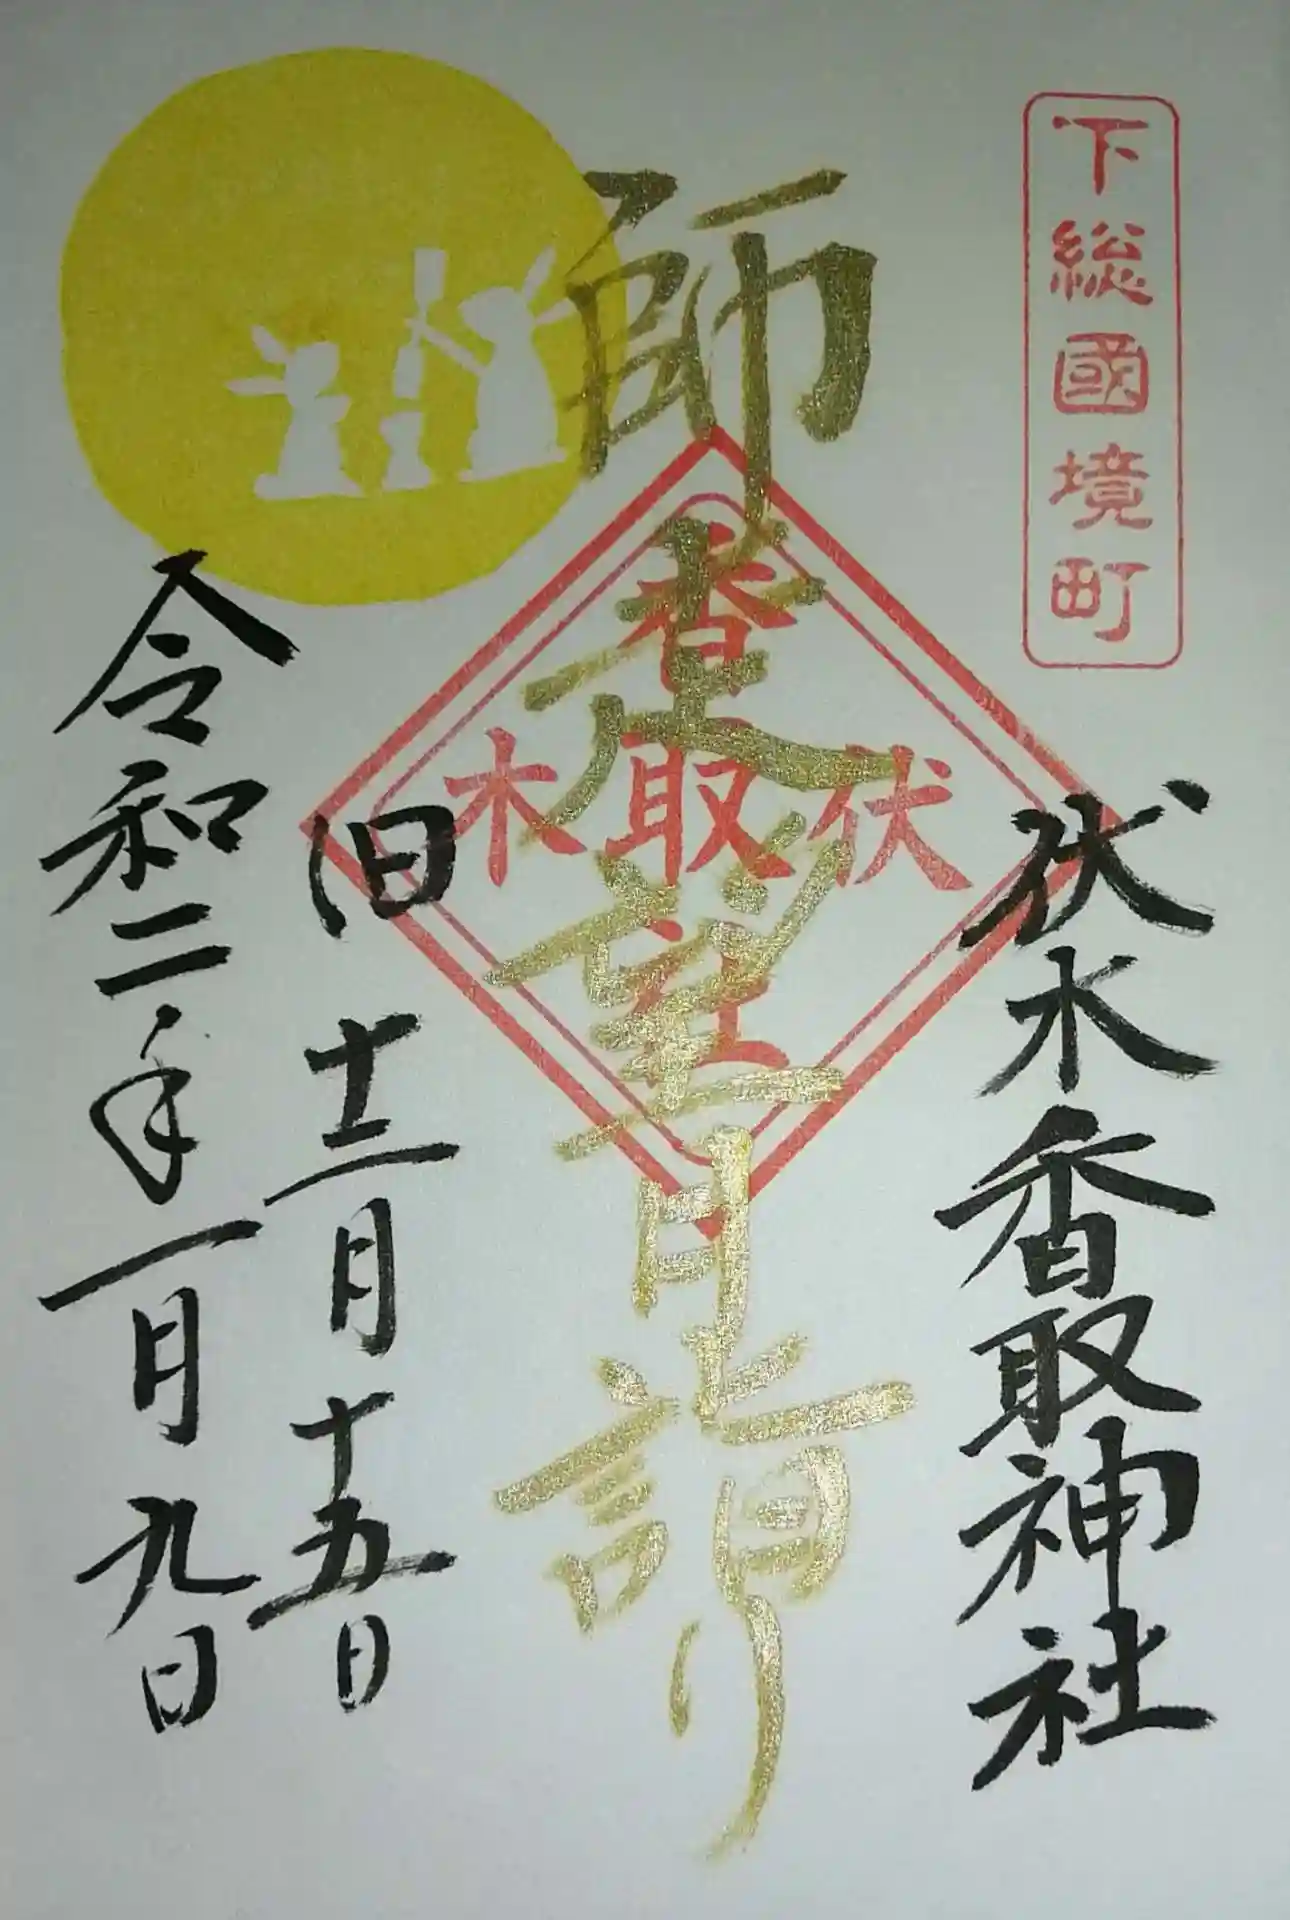 下総國境町
伏木香取神社
師走望月詣り
香取社
伏木
旧十二月十五日
令和二年一月九日